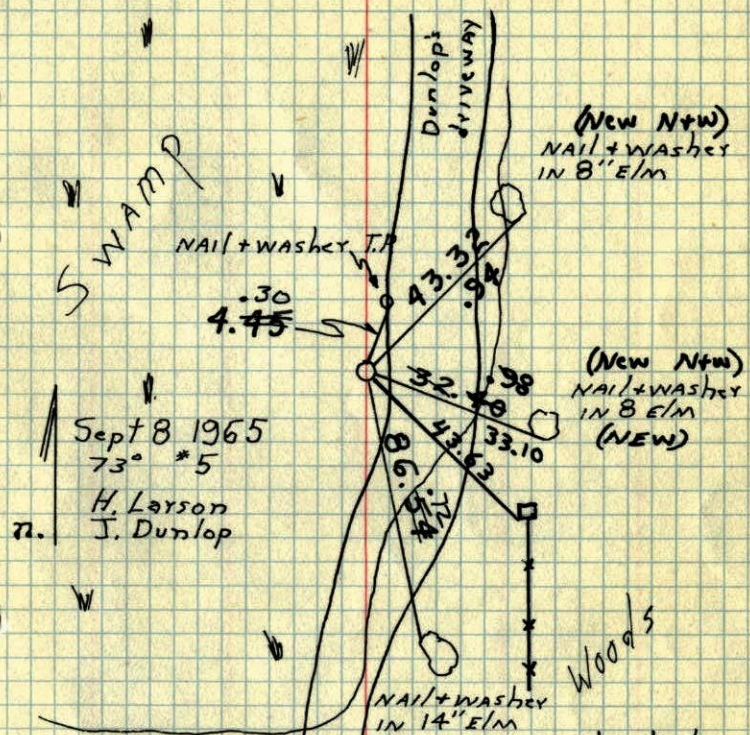 Dunlop's
driveway
(New N+W)
NAIL + WAsher
IN 8" Elm
SWAMP
NAIL + WAsher T.P.
.30
4.45
43.32
.94
32.40
.98
33.10
(New N+W)
NAIL + WAsher
IN 8 Elm
(NEW)
43.63
86.54
.72
Sept 8 1965
73° #5
H. Larson
J. Dunlop
n.
Woods
NAIL + WAsher
IN 14" Elm